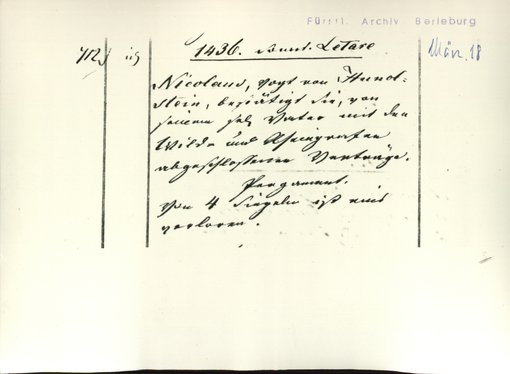 Fürstl. Archiv Berleburg
1436. Sonnt. Letare
März 18
Nicolaus, Vogt von Hunol-
stein, bestätigt die, von
seinem sel. Vater mit den
Wild- und Rheingrafen
abgeschlossenen Verträge.
Pergament.
Von 4 Siegeln ist eins
verloren.